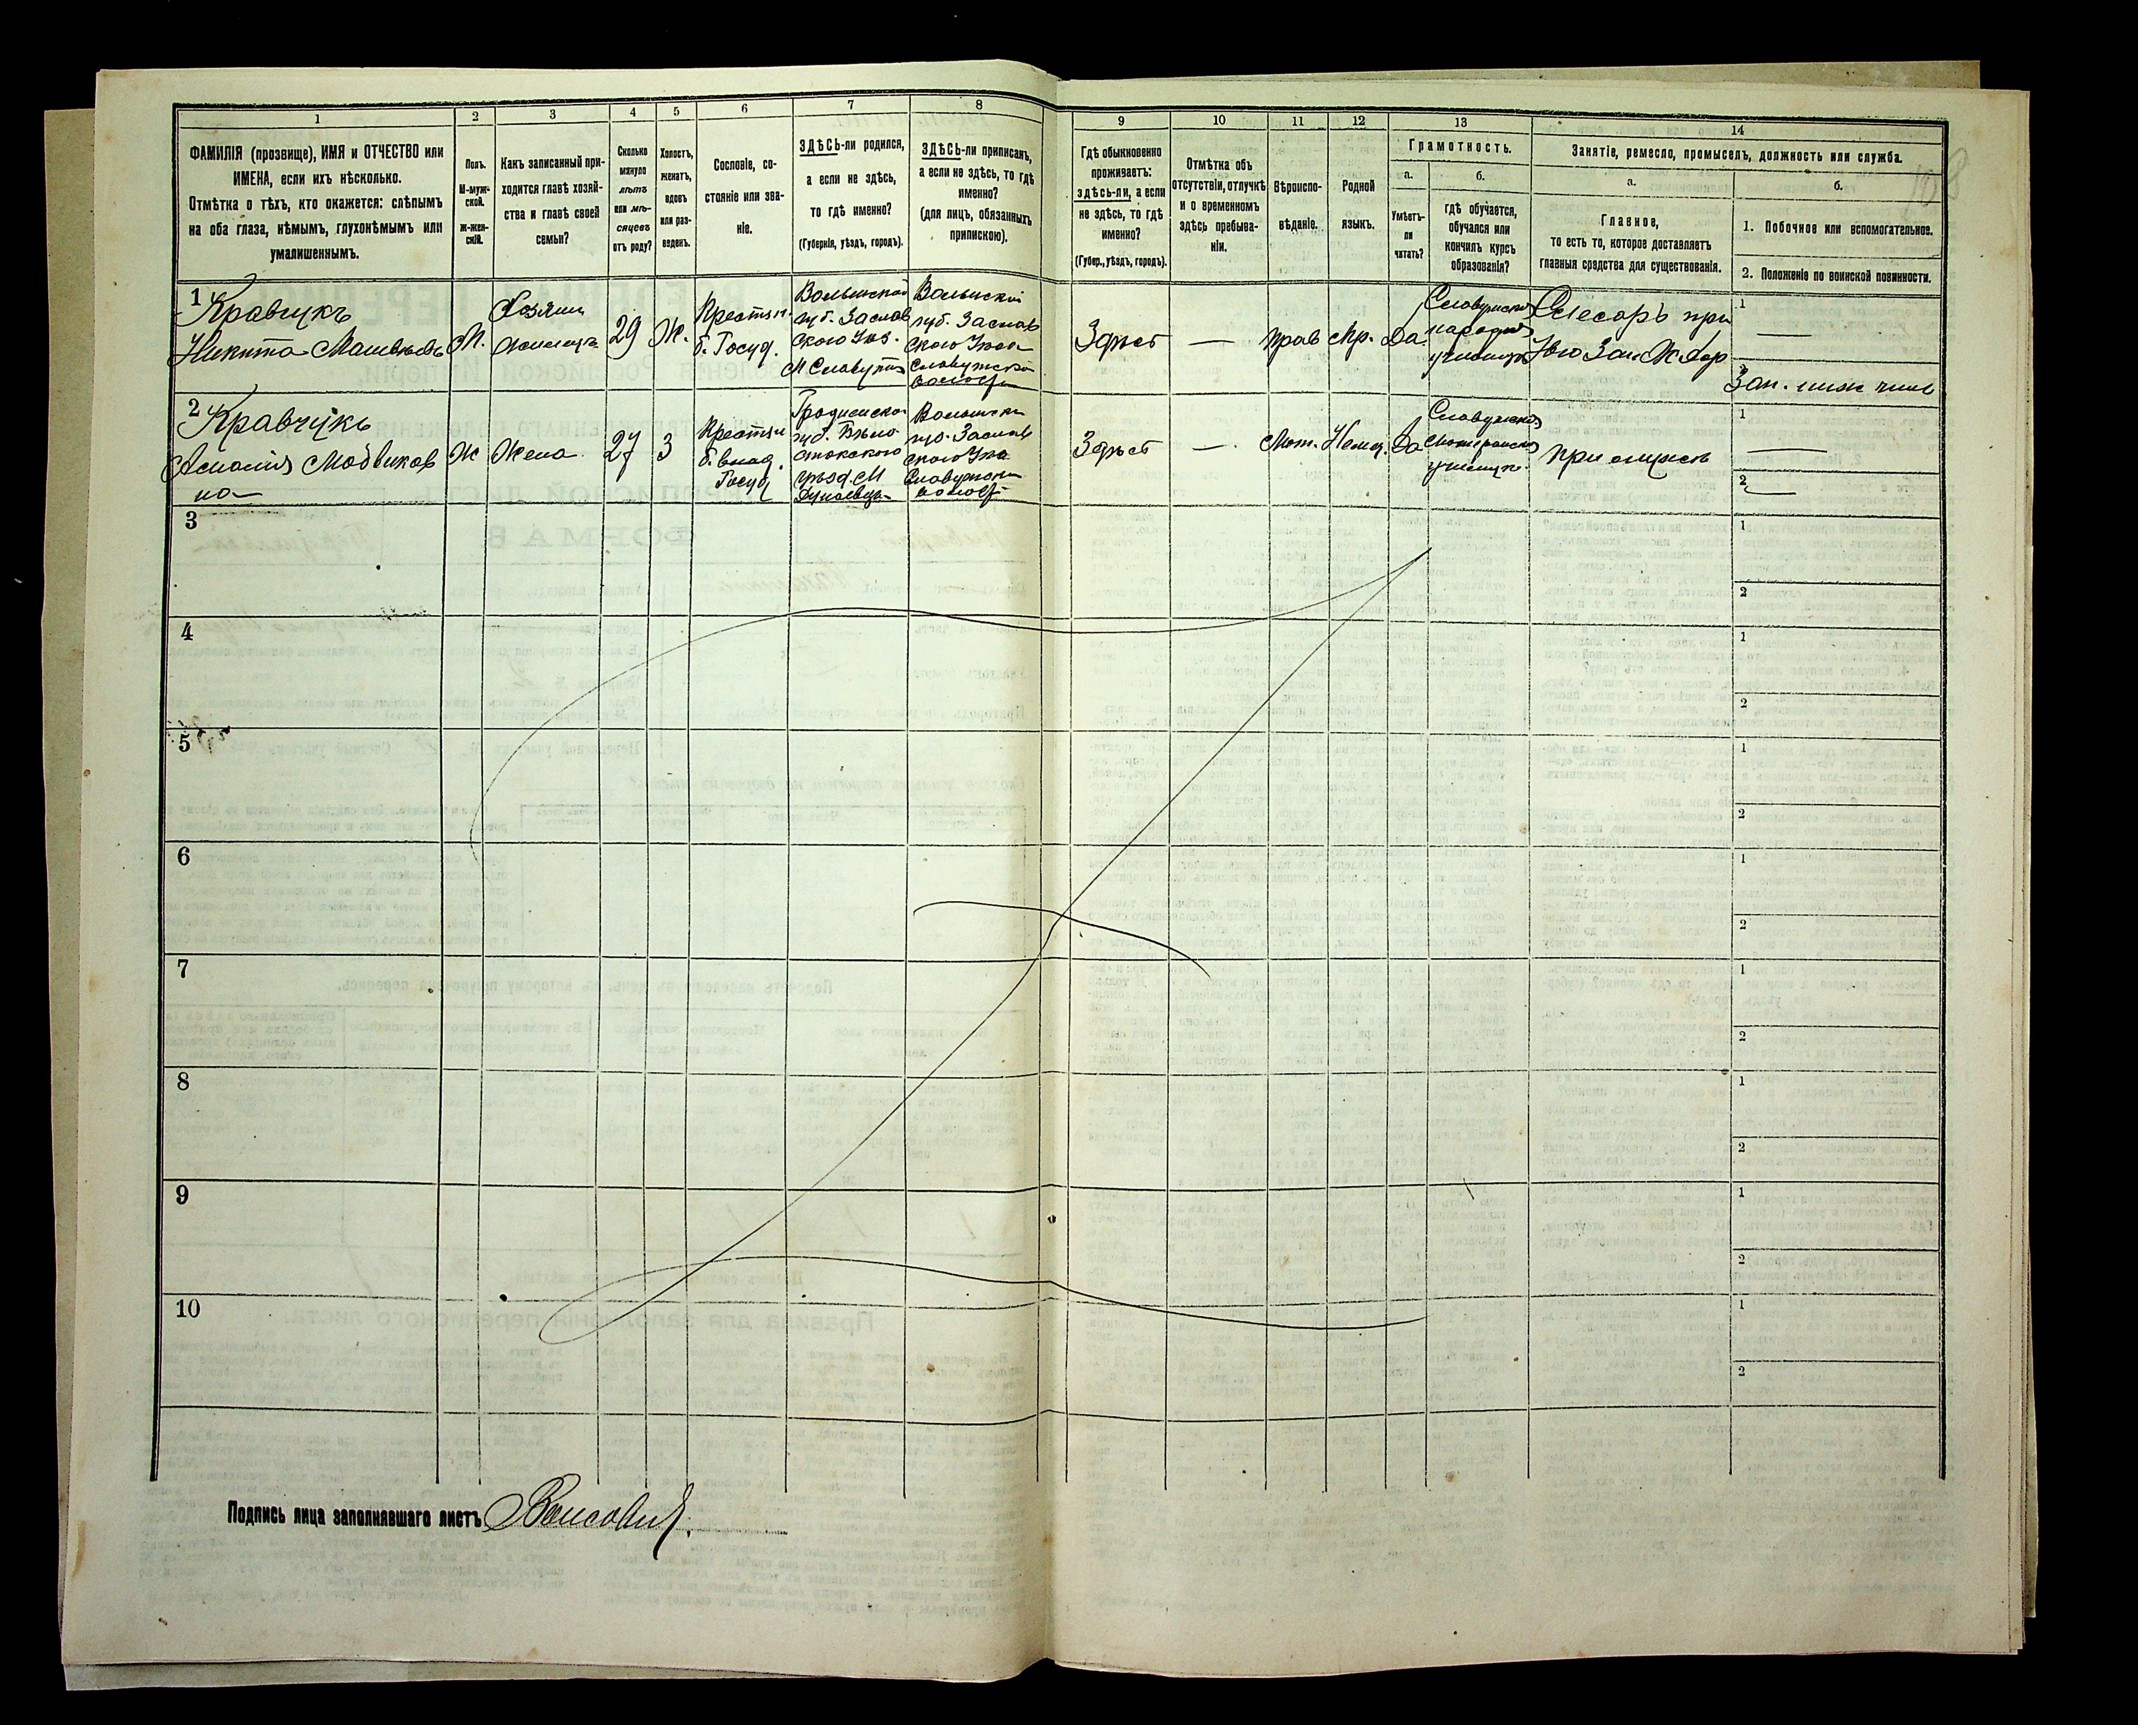 1
2
3
4
5
6
7
8
9
10
11
12
13
14
ФАМИЛІЯ (прозвище), ИМЯ и ОТЧЕСТВО или
ИМЕНА, если ихъ нѣсколько.
Отмѣтка о тѣхъ, кто окажется: слѣпымъ
на оба глаза, нѣмымъ, глухонѣмымъ или
умалишеннымъ.
Полъ.
М-муж-
ской.
ж-жен-
скій.
Какъ записанный при-
ходится главѣ хозяй-
ства и главѣ своей
семьи?
Сколько
минуло
лѣтъ
или мѣ-
сяцевъ
отъ роду?
Холостъ,
женатъ,
вдовъ
или раз-
веденъ.
Сословіе, со-
стояніе или зва-
ніе.
ЗДѢСЬ-ли родился,
а если не здѣсь,
то гдѣ именно?
(Губернія, уѣздъ, городъ).
ЗДѢСЬ-ли приписанъ,
а если не здѣсь, то гдѣ
именно?
(для лицъ, обязанныхъ
припискою).
Гдѣ обыкновенно
проживаетъ:
здѣсь-ли, а если
не здѣсь, то гдѣ
именно?
(Губер., уѣздъ, городъ).
Отмѣтка объ
отсутствіи, отлучкѣ
и о временномъ
здѣсь пребыва-
ніи.
Вѣроиспо-
вѣданіе.
Родной
языкъ.
Грамотность.
а.
Умѣетъ-
ли
читать?
б.
гдѣ обучается,
обучался или
кончилъ курсъ
образованія?
Занятіе, ремесло, промыселъ, должность или служба.
а.
Главное,
то есть то, которое доставляетъ
главныя средства для существованія.
б.
1. Побочное или вспомогательное.
2. Положеніе по воинской повинности.
1
Кравчукъ
Никита Матвѣевъ
М.
Хозяинъ
29
Ж.
Крестян.
б. Госуд.
Волынской
губ. Заслав
ского Уѣз.
М Славута
Волынской
губ. Заслав
ского Уѣзд
Славутской
волости
Здѣсь
—
прав
Мр.
Да.
Славутское
народное
училище
Слесарь при
1
—
2
Зап. ниж чинъ
2
Кравчукъ
Ж
Жена
27
З
Крестян
Госуд
Гродненской
губ. Бѣло
стокского
уѣзд. М
Волынской
губ. Заслав
ского Уѣз
Славутской
волости
Здѣсь
—
Лют.
Немец.
Да
Славутское
Лютеранское
училище
при мужѣ
1
—
2
—
3
1
2
4
1
2
5
1
2
6
1
2
7
1
2
8
1
2
9
1
2
10
1
2
Подпись лица заполнявшаго листъ